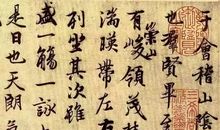 于會稽山陰
也羣賢畢至
有崇山峻領茂林
湍暎帶左右
列坐其次雖
盛一觴一詠
是日也天朗氣